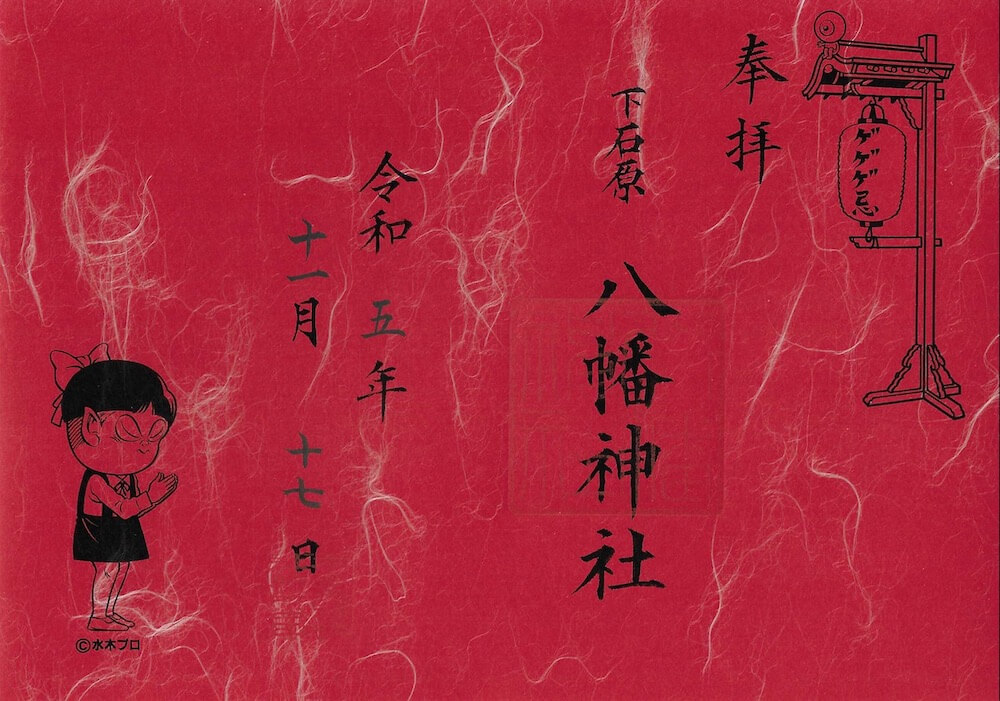 奉拝
ゲゲゲ忌
下石原
八幡神社
令和五年
十一月十七日
©水木プロ